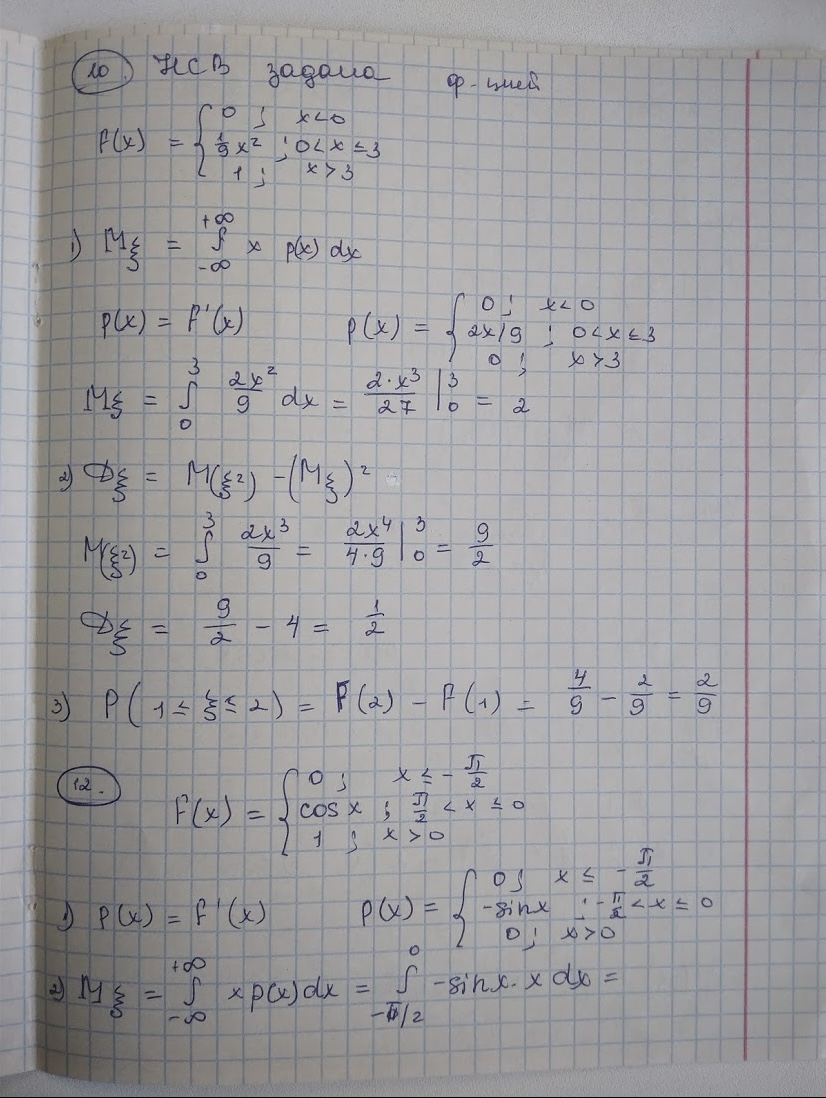 10. НСВ задана ф-цией
F(x) = { 0 ; x<0
1/9 x² ; 0<x≤3
1 ; x>3
1) Mξ = ∫_{-∞}^{+∞} x p(x) dx
p(x) = F'(x) p(x) = { 0 ; x<0
2x/9 ; 0<x≤3
0 ; x>3
Mξ = ∫_0^3 2x²/9 dx = 2·x³/27 |_0^3 = 2
2) Dξ = M(ξ²) - (Mξ)²
M(ξ²) = ∫_0^3 2x³/9 = 2x⁴/4·9 |_0^3 = 9/2
Dξ = 9/2 - 4 = 1/2
3) P( 1 ≤ ξ ≤ 2) = F(2) - F(1) = 4/9 - 2/9 = 2/9
12. F(x) = { 0 ; x ≤ -π/2
cos x ; π/2 < x ≤ 0
1 ; x>0
1) p(x) = F'(x) p(x) = { 0 ; x ≤ -π/2
-sinx ; -π/2 < x ≤ 0
0 ; x>0
2) Mξ = ∫_{-∞}^{+∞} x p(x) dx = ∫_{-π/2}^0 -sinx · x dx =